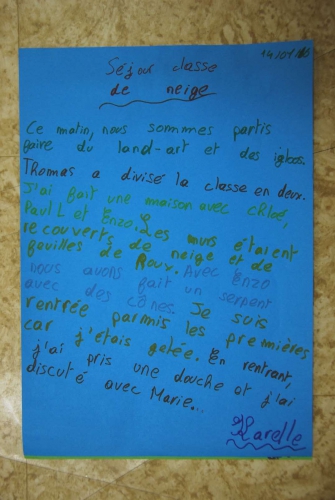 14/01/16
Séjour classe
de neige
Ce matin, nous sommes partis
faire du land-art et des igloos.
Thomas a divisé la classe en deux.
J'ai fait une maison avec Chloé,
Paul L et Enzo. Les murs étaient
recouverts de neige et de
feuilles de Roux. Avec Enzo
nous avons fait un serpent
avec des cônes. Je suis
rentrée parmis les premières
car j'étais gelée. En rentrant,
j'ai pris une douche et j'ai
discuté avec Marie...
Karelle